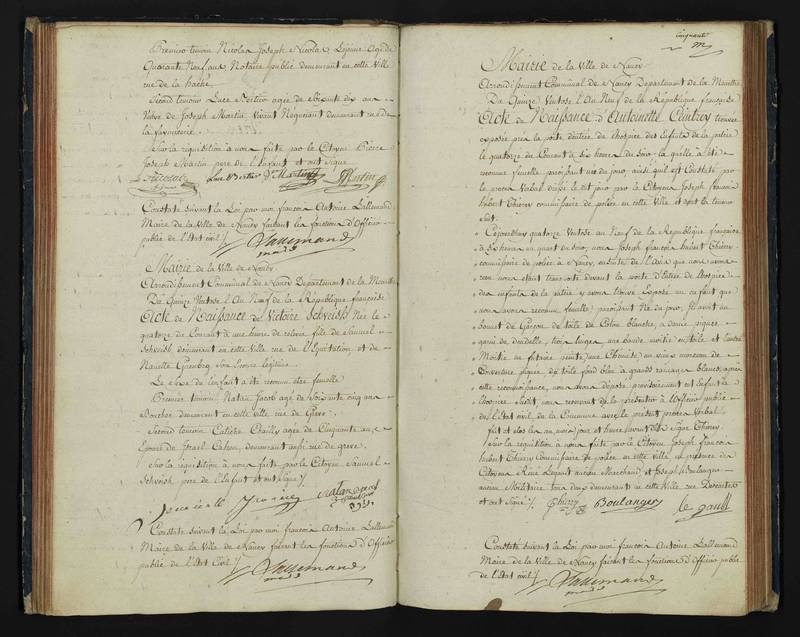 Premier temoin Nicolas Joseph Nicolas Lejeune Agé de
Quarante Neuf ans Notaire public demeurant en cette Ville
rue de la hache
Second temoin Luce Bertier agée de soixante dix ans
Veuve de Joseph Martin Vivant Negociant demeurant rue de
la fayencerie.
Sur la requisition à nous faite par le Citoyen Pierre
Joseph Martin pere de l'Enfant et ont signé
Luce Bertier Martin Martin
Constaté suivant la Loi par moi françois Antoine Lallemand
Maire de la Ville de Nancy faisant les fonctions d'Officier
public de l'Etat civil ./.
Lallemand
maire
Mairie de la Ville de Nancy
Arrondissement Communal de Nancy Departement de la Meurthe
Du Quinze Ventose l'An Neuf de la République française
Acte de Naissance de Victoire Schveish Née le
quatorze du Courant à une heure de relevée fille de Samuel
Schveish demeurant en cette Ville rue de l'Equitation et de
Son Epouse légitime.
Le sexe de l'enfant a été reconnu être femelle
Premier temoin Natan Jacob agé de soixante cinq ans
Boucher demeurant en cette ville rue de Grève.
Second temoin agée de Cinquante ans
Epouse de Israel Cahen, demeurant aussi rue de greve.
Sur la requisition à nous faite par le Citoyen Samuel
Schveish pere de l'Enfant et ont signé ./.
natan
Constaté suivant la Loi par moi françois Antoine Lallemand
Maire de la Ville de Nancy faisant les fonctions d'Officier
public de l'Etat Civil ./.
Lallemand
maire
Cinquante
Mairie de la Ville de Nancy
Arrondissement Communal de Nancy Departement de la Meurthe
Du Quinze Ventose l'An Neuf de la République française
Acte de Naissance d'Antoinette trouvée
exposée près la porte d'entrée de l'hospice des Enfants de la patrie
le quatorze du Courant à six heures du soir laquelle a été
reconnue femelle paroissant née du jour, ainsi qu'il est Constaté par
le procès Verbal dressé le dit jour par le Citoyen Joseph françois
hubert Thiery commissaire de police en cette Ville et dont la teneur
suit:
Cejourdhuy quatorze Ventose an Neuf de la République française
à six heures un quart du soir, nous Joseph françois hubert Thiery
commissaire de police à Nancy, ensuite de l'avis que nous avons
reçu nous étant transporté devant la porte d'Entrée de l'hospice
des enfants de la patrie y avons trouvé Exposé un enfant que
nous avons reconnu femelle, paroissant Né du jour, ayant un
bonnet de Garçon de toile de Coton blanche, à demie piquée
garni de dentelle, trois langes une bande moitié en toile et l'autre
Moitié en futaine une Chemise, un vieux morceau de
Couverture piquée de toile fond bleu à grands ramages blancs, après
cette reconnoissance, nous avons déposé provisoirement cet Enfant à
l'hospice susdit, nous reservant de le présenter à l'Officier public
de l'Etat civil de la Commune avec le présent procès Verbal
fait et clos les an, mois, jour, et heure avant dits Signé Thiery.
Sur la requisition à nous faite par le Citoyen Joseph françois
hubert Thiery Commissaire de police en cette ville en présence des
Citoyens René Legault ancien Marchand, et Joseph Boulanger
ancien Militaire tous deux demeurants en cette Ville rue
et ont signé ./. Thiery Boulanger le gault
Constaté suivant la Loi par moi françois Antoine Lallemand
Maire de la Ville de Nancy faisant les fonctions d'Officier public
de l'Etat civil ./.
Lallemand
maire